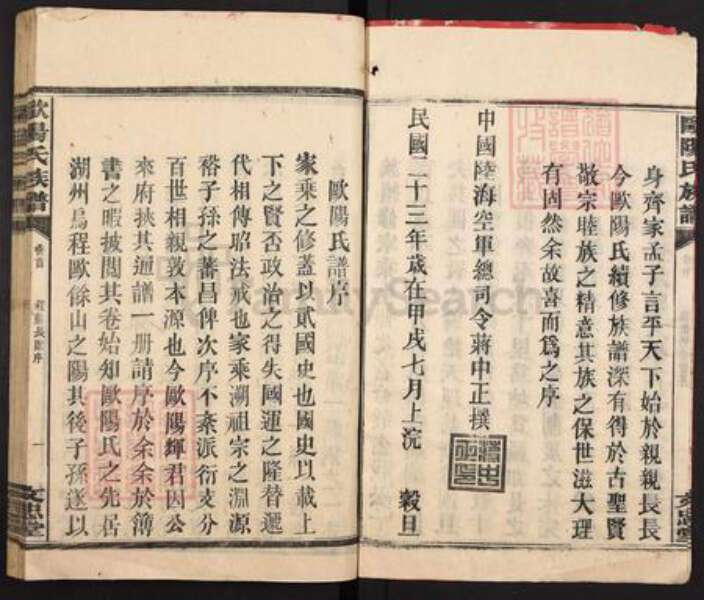 歐陽氏族譜
身齊家孟子言平天下始於親親長長
今歐陽氏續修族譜深有得於古聖賢
敬宗睦族之精意其族之保世滋大理
有固然余故喜而爲之序
中國陸海空軍總司令蔣中正撰
民國二十三年歲在甲戌七月上浣 穀旦
文忠堂
歐陽氏譜序
家乘之修蓋以貳國史也國史以載上
下之賢否政治之得失國運之隆替遞
代相傳昭法戒也家乘溯祖宗之淵源
裕子孫之蕃昌俾次序不紊派衍支分
百世相親敦本源也今歐陽輝君因公
來府挾其通譜一册請序於余余於簿
書之暇披閱其卷始知歐陽氏之先居
湖州烏程歐餘山之陽其後子孫遂以
歐陽氏族譜
卷首
序
一
文忠堂
FamilySearch